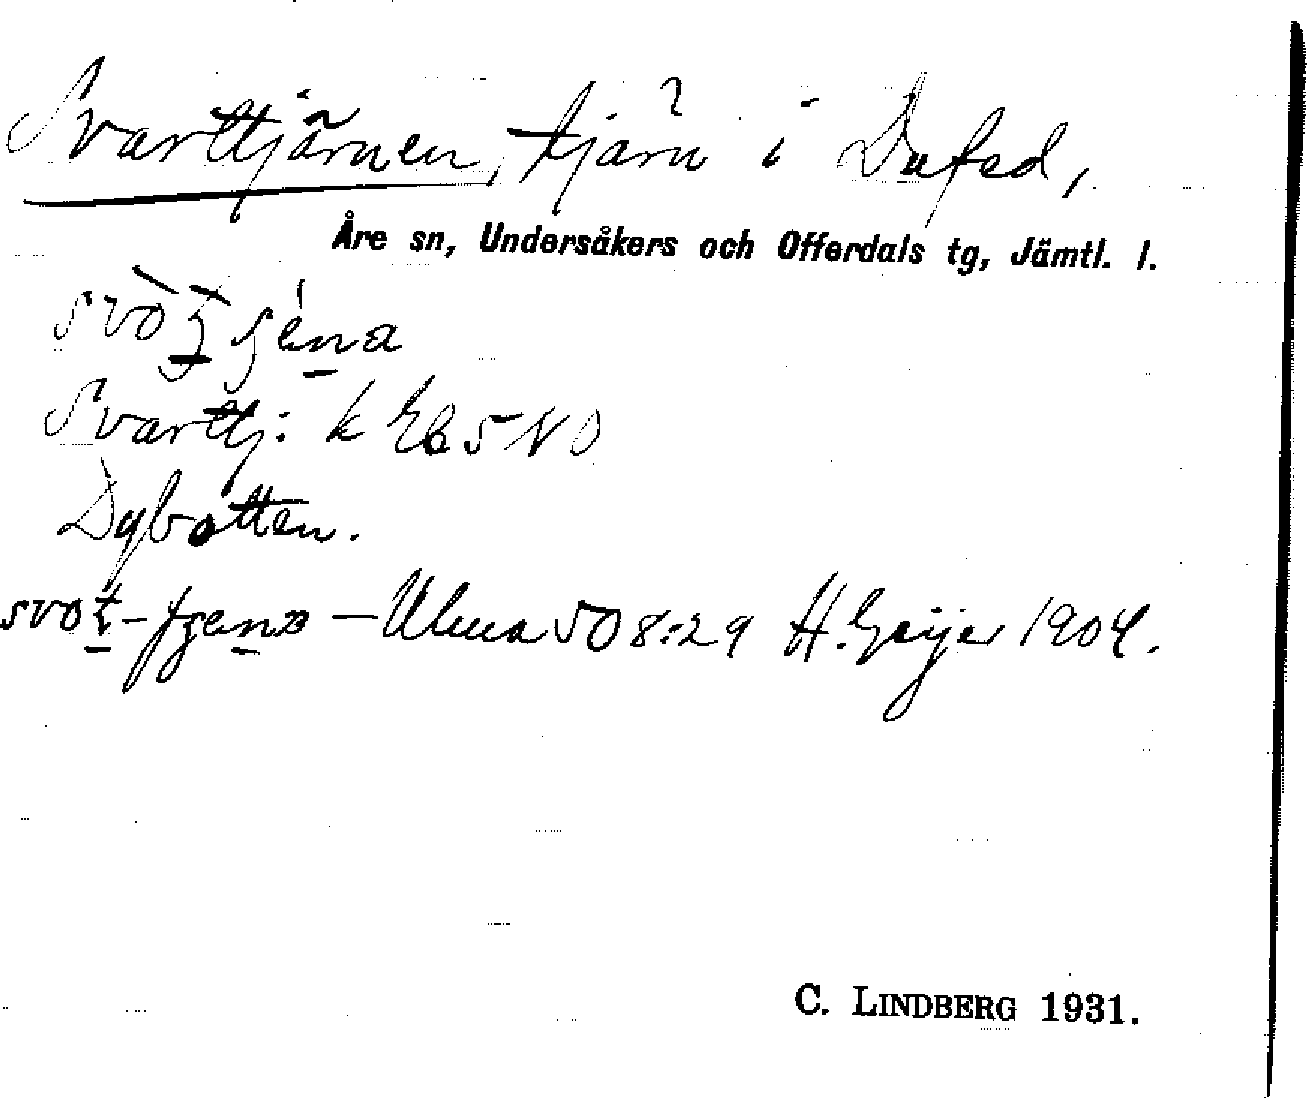 Svarttjärnen, tjärn i Dufed,
Åre sn, Undersåkers och Offerdals tg, Jämtl. l.
Svarttj: k Eb 5 NO
Dybotten.
— Ulma 508:29 H. Geijer 1904.
C. LINDBERG 1931.